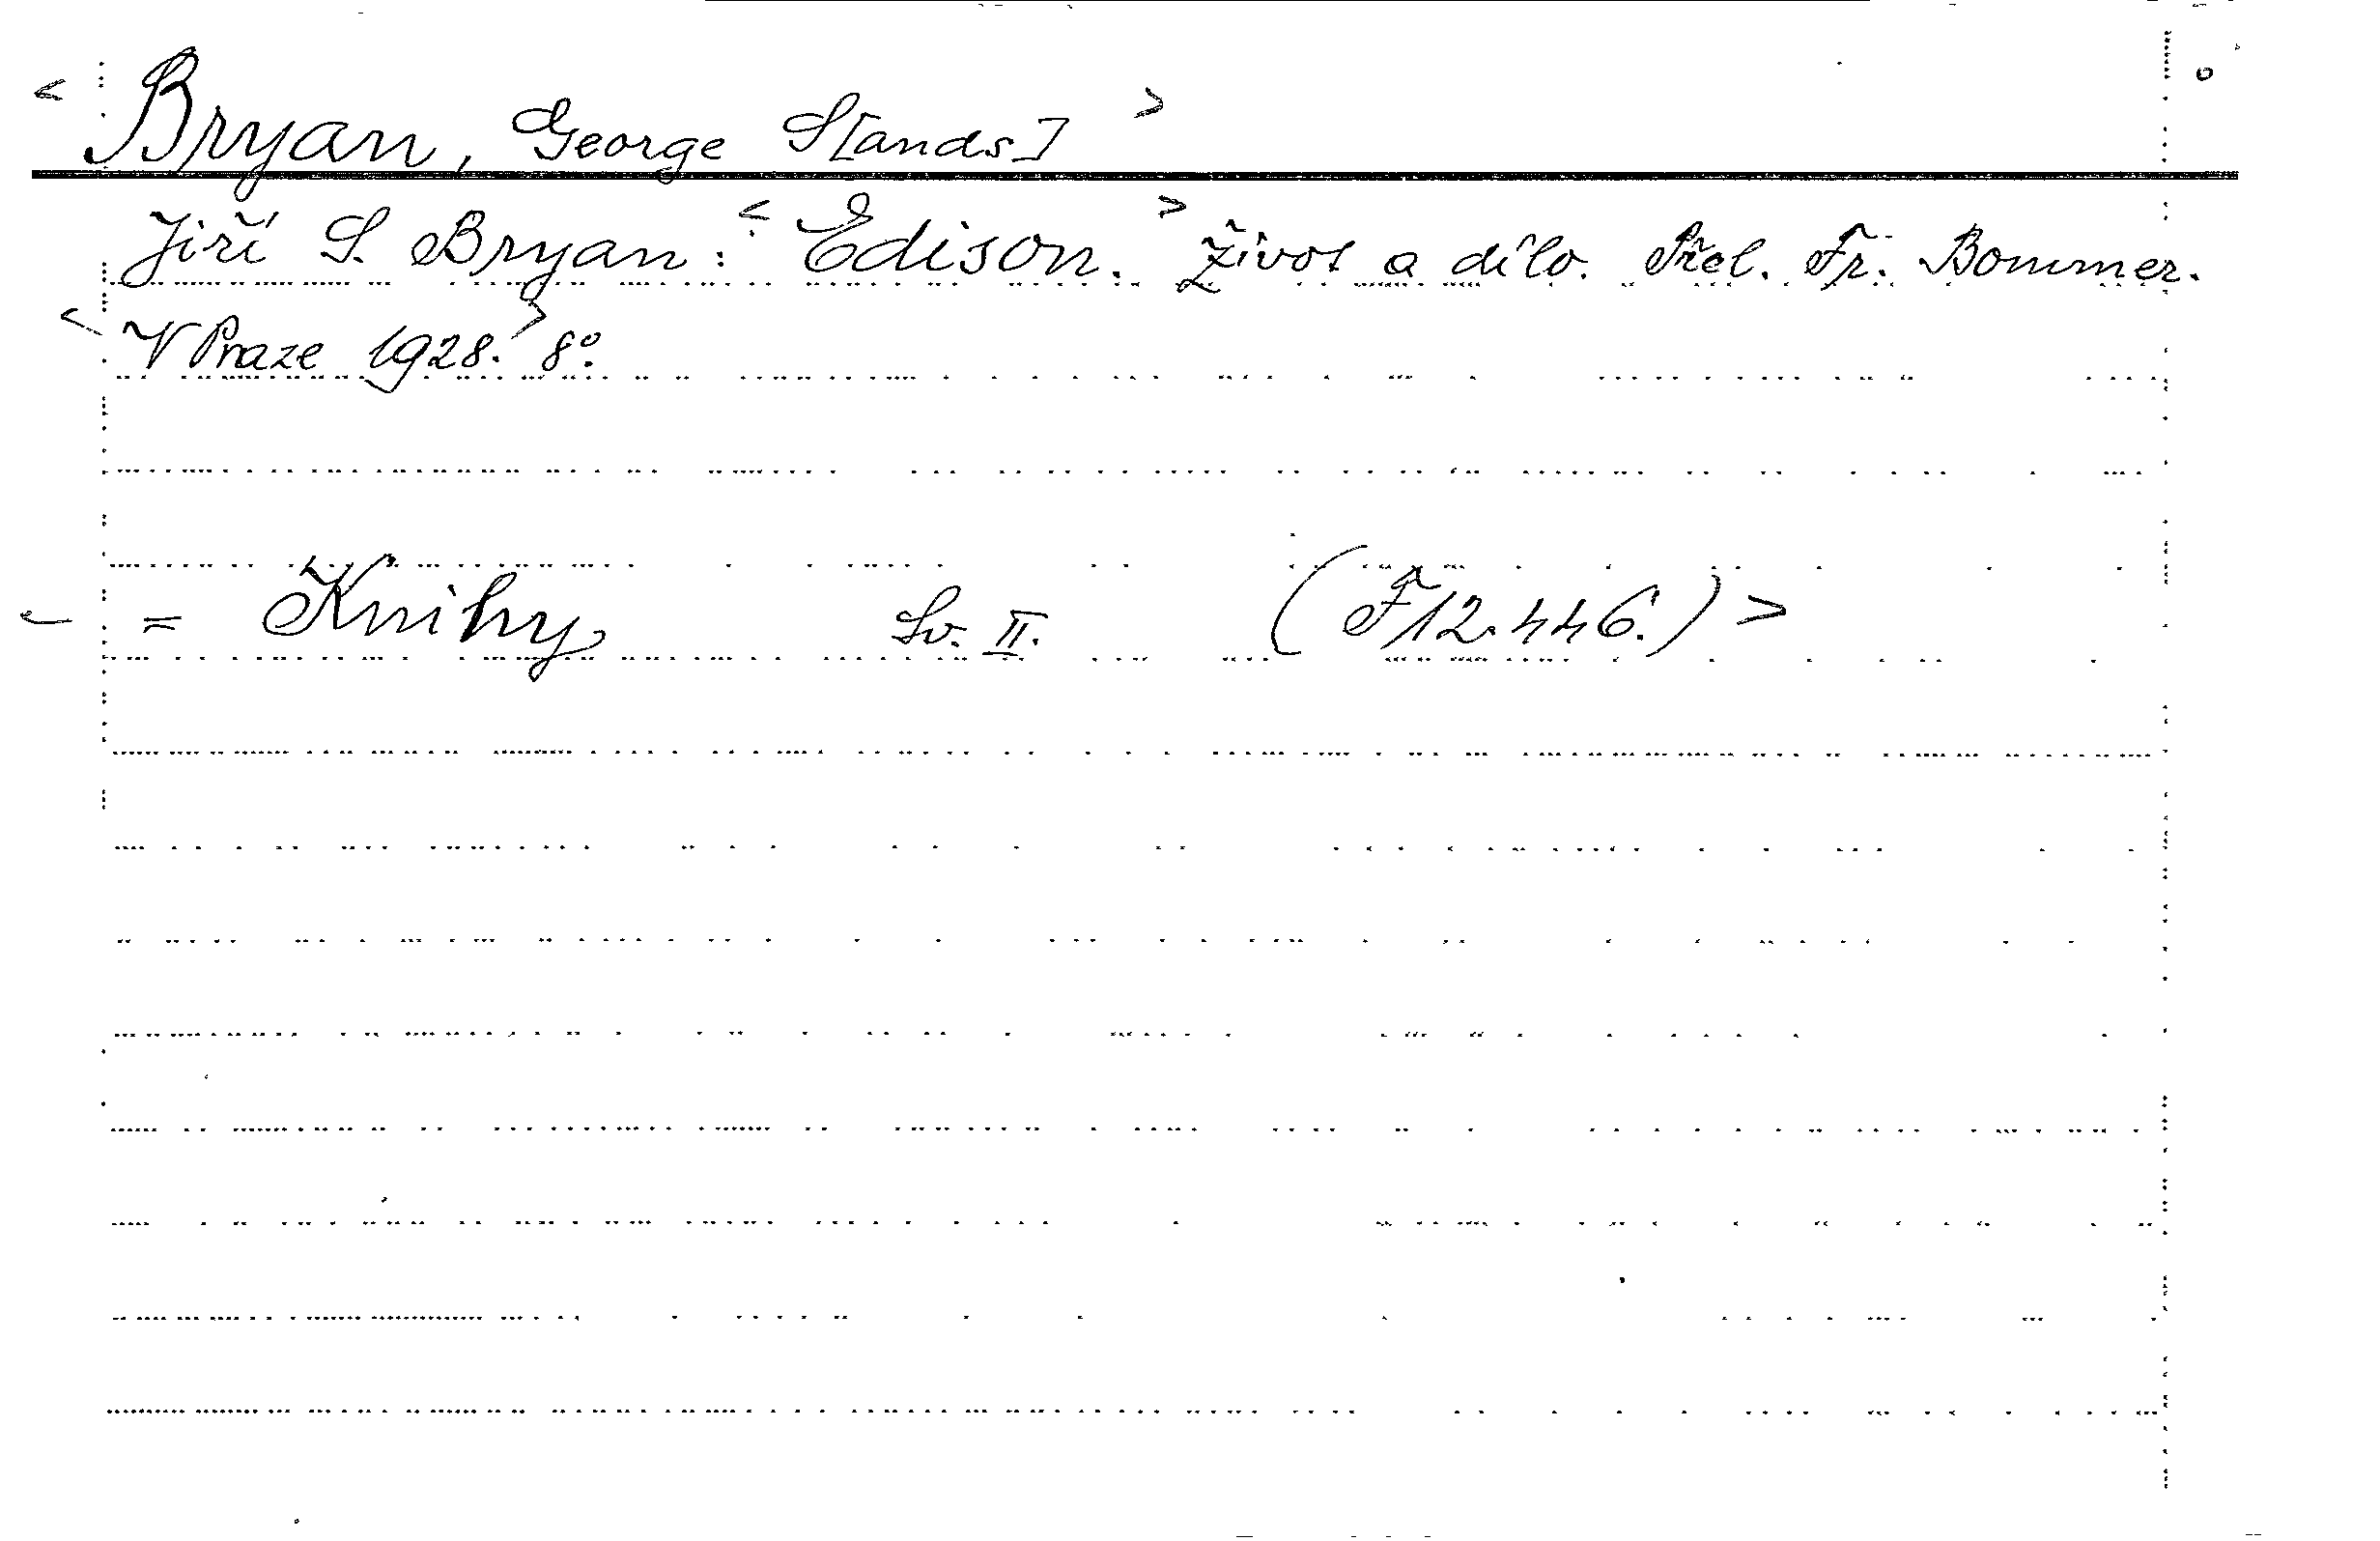 < Bryan, George S[ands] >
Jiří S. Bryan: < Edison. > Život a dílo. Přel. Fr. Bommer.
< V Praze 1928. > 8°.
= Knihy Sv. II. (F 12.446.) >